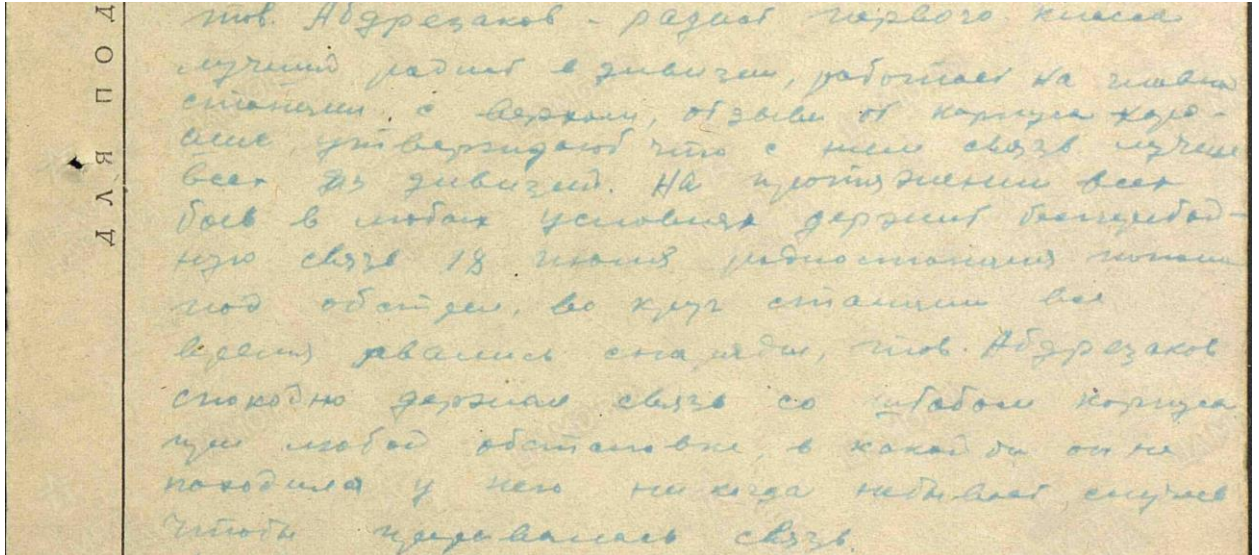 тов. Абдрезаков - радист первого класса
лучший радист в дивизии, работает на главно
станции с верхом, отзывы от корпуса хоро-
шие, утверждают что с ним связь лучше
всех из дивизий. На протяжении всех
боев в любых условиях держит бесперебой-
ную связь 18 июня радиостанция попала
под обстрел, во круг станции все
время рвались снаряды, тов. Абдрезаков
спокойно держал связь со штабом корпуса
при любой обстановке, в какой бы он не
находился у него ни когда небывает случаев
чтобы прервалась связь.
ДОПЯУД